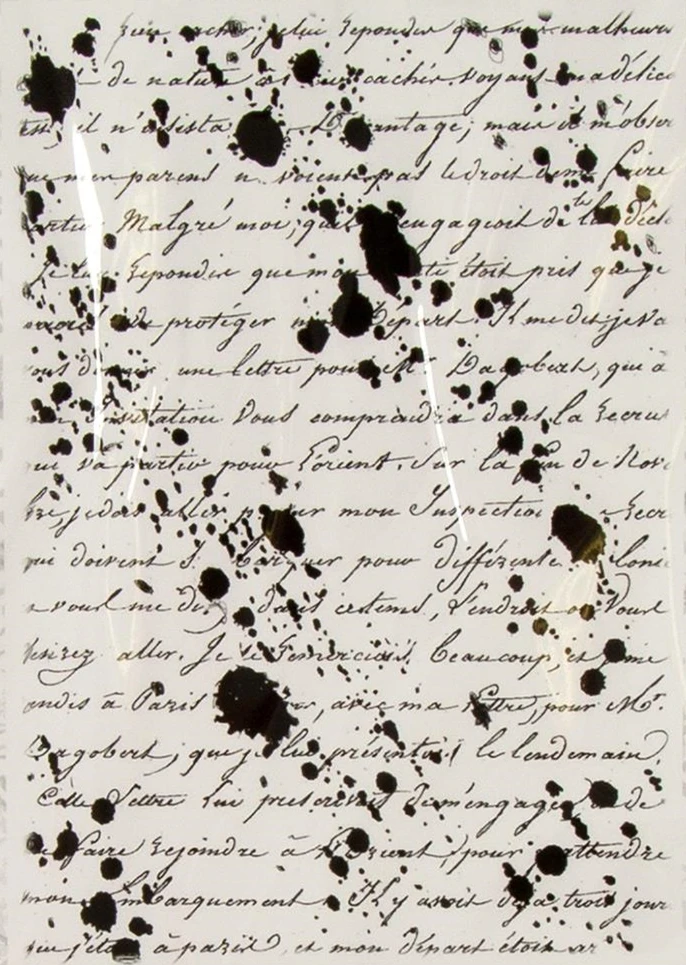 rien cacher, je lui repondis que mes malheurs
de nature à cachés. Voyant ma délica
il n'insista davantage; mais il m'obser
que mes parens n avoient pas le droit de me faire
partir Malgré moi; que engageoit de le déch
Je lui repondis que mon étoit pris que je
de protéger mon départ. Il me dit: je va
vous donner une lettre pour Mr. Dagobert, qui a
Invitation vous comprendra dans la recrue
qui va partir pour L'orient. Sur la fin de Nov
bre, je dois aller passer mon Inspection recr
qui doivent S. barquer pour différente Coni
vous me dans cetems, L'endroit ou vous
desirez aller. Je le remerciois beaucoup, et me
rendis à Paris avec ma Lettre, pour Mr.
Dagobert, que je lui présentois le lendemain.
Cette Lettre lui prescrivoit de m'engager de
me faire rejoindre à L'orient, pour attendre
mon Embarquement. Il y avoit deja trois jours
que j'étois à paris, et mon départ étoit ar